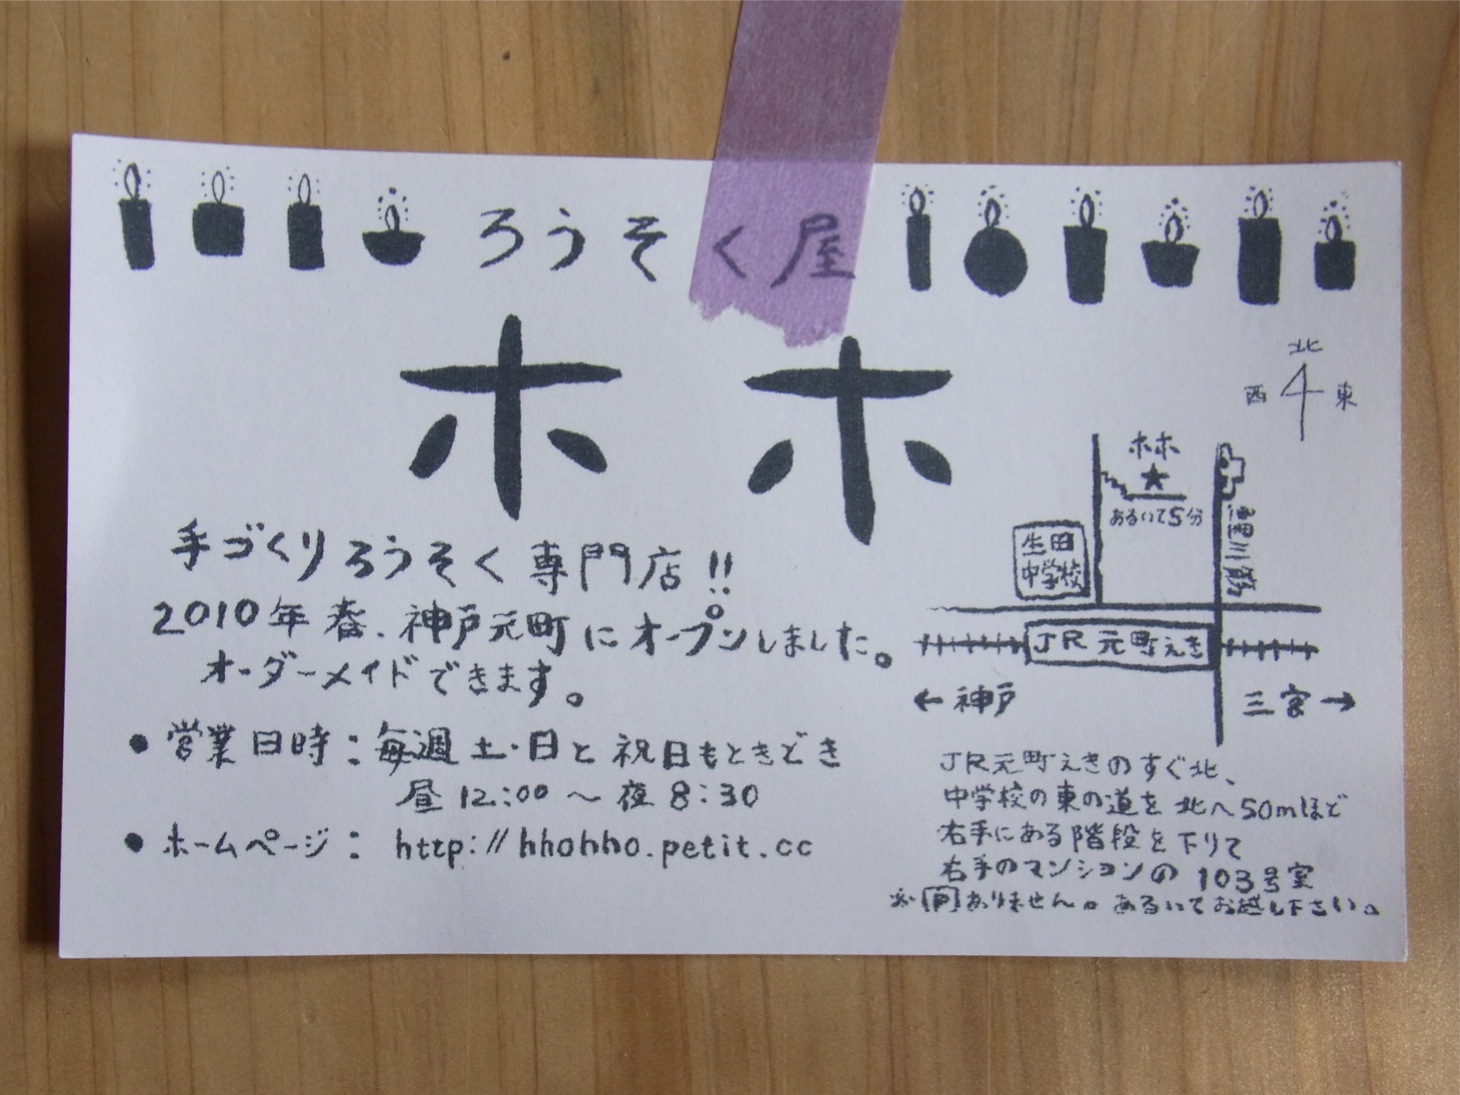 ろうそく屋
ホホ
手づくりろうそく専門店!!
2010年春、神戸元町にオープンしました。
オーダーメイドできます。
● 営業日時：毎週土・日と祝日もときどき
昼12:00～夜8:30
● ホームページ： http://hhohho.petit.cc
北
西 東
ホホ
★
あるいて5分
生田
中学校
鯉川筋
JR元町えき
← 神戸
三宮 →
JR元町えきのすぐ北、
中学校の東の道を北へ50mほど
右手にある階段を下りて
右手のマンションの103号室
※Ⓟありません。あるいてお越し下さい。